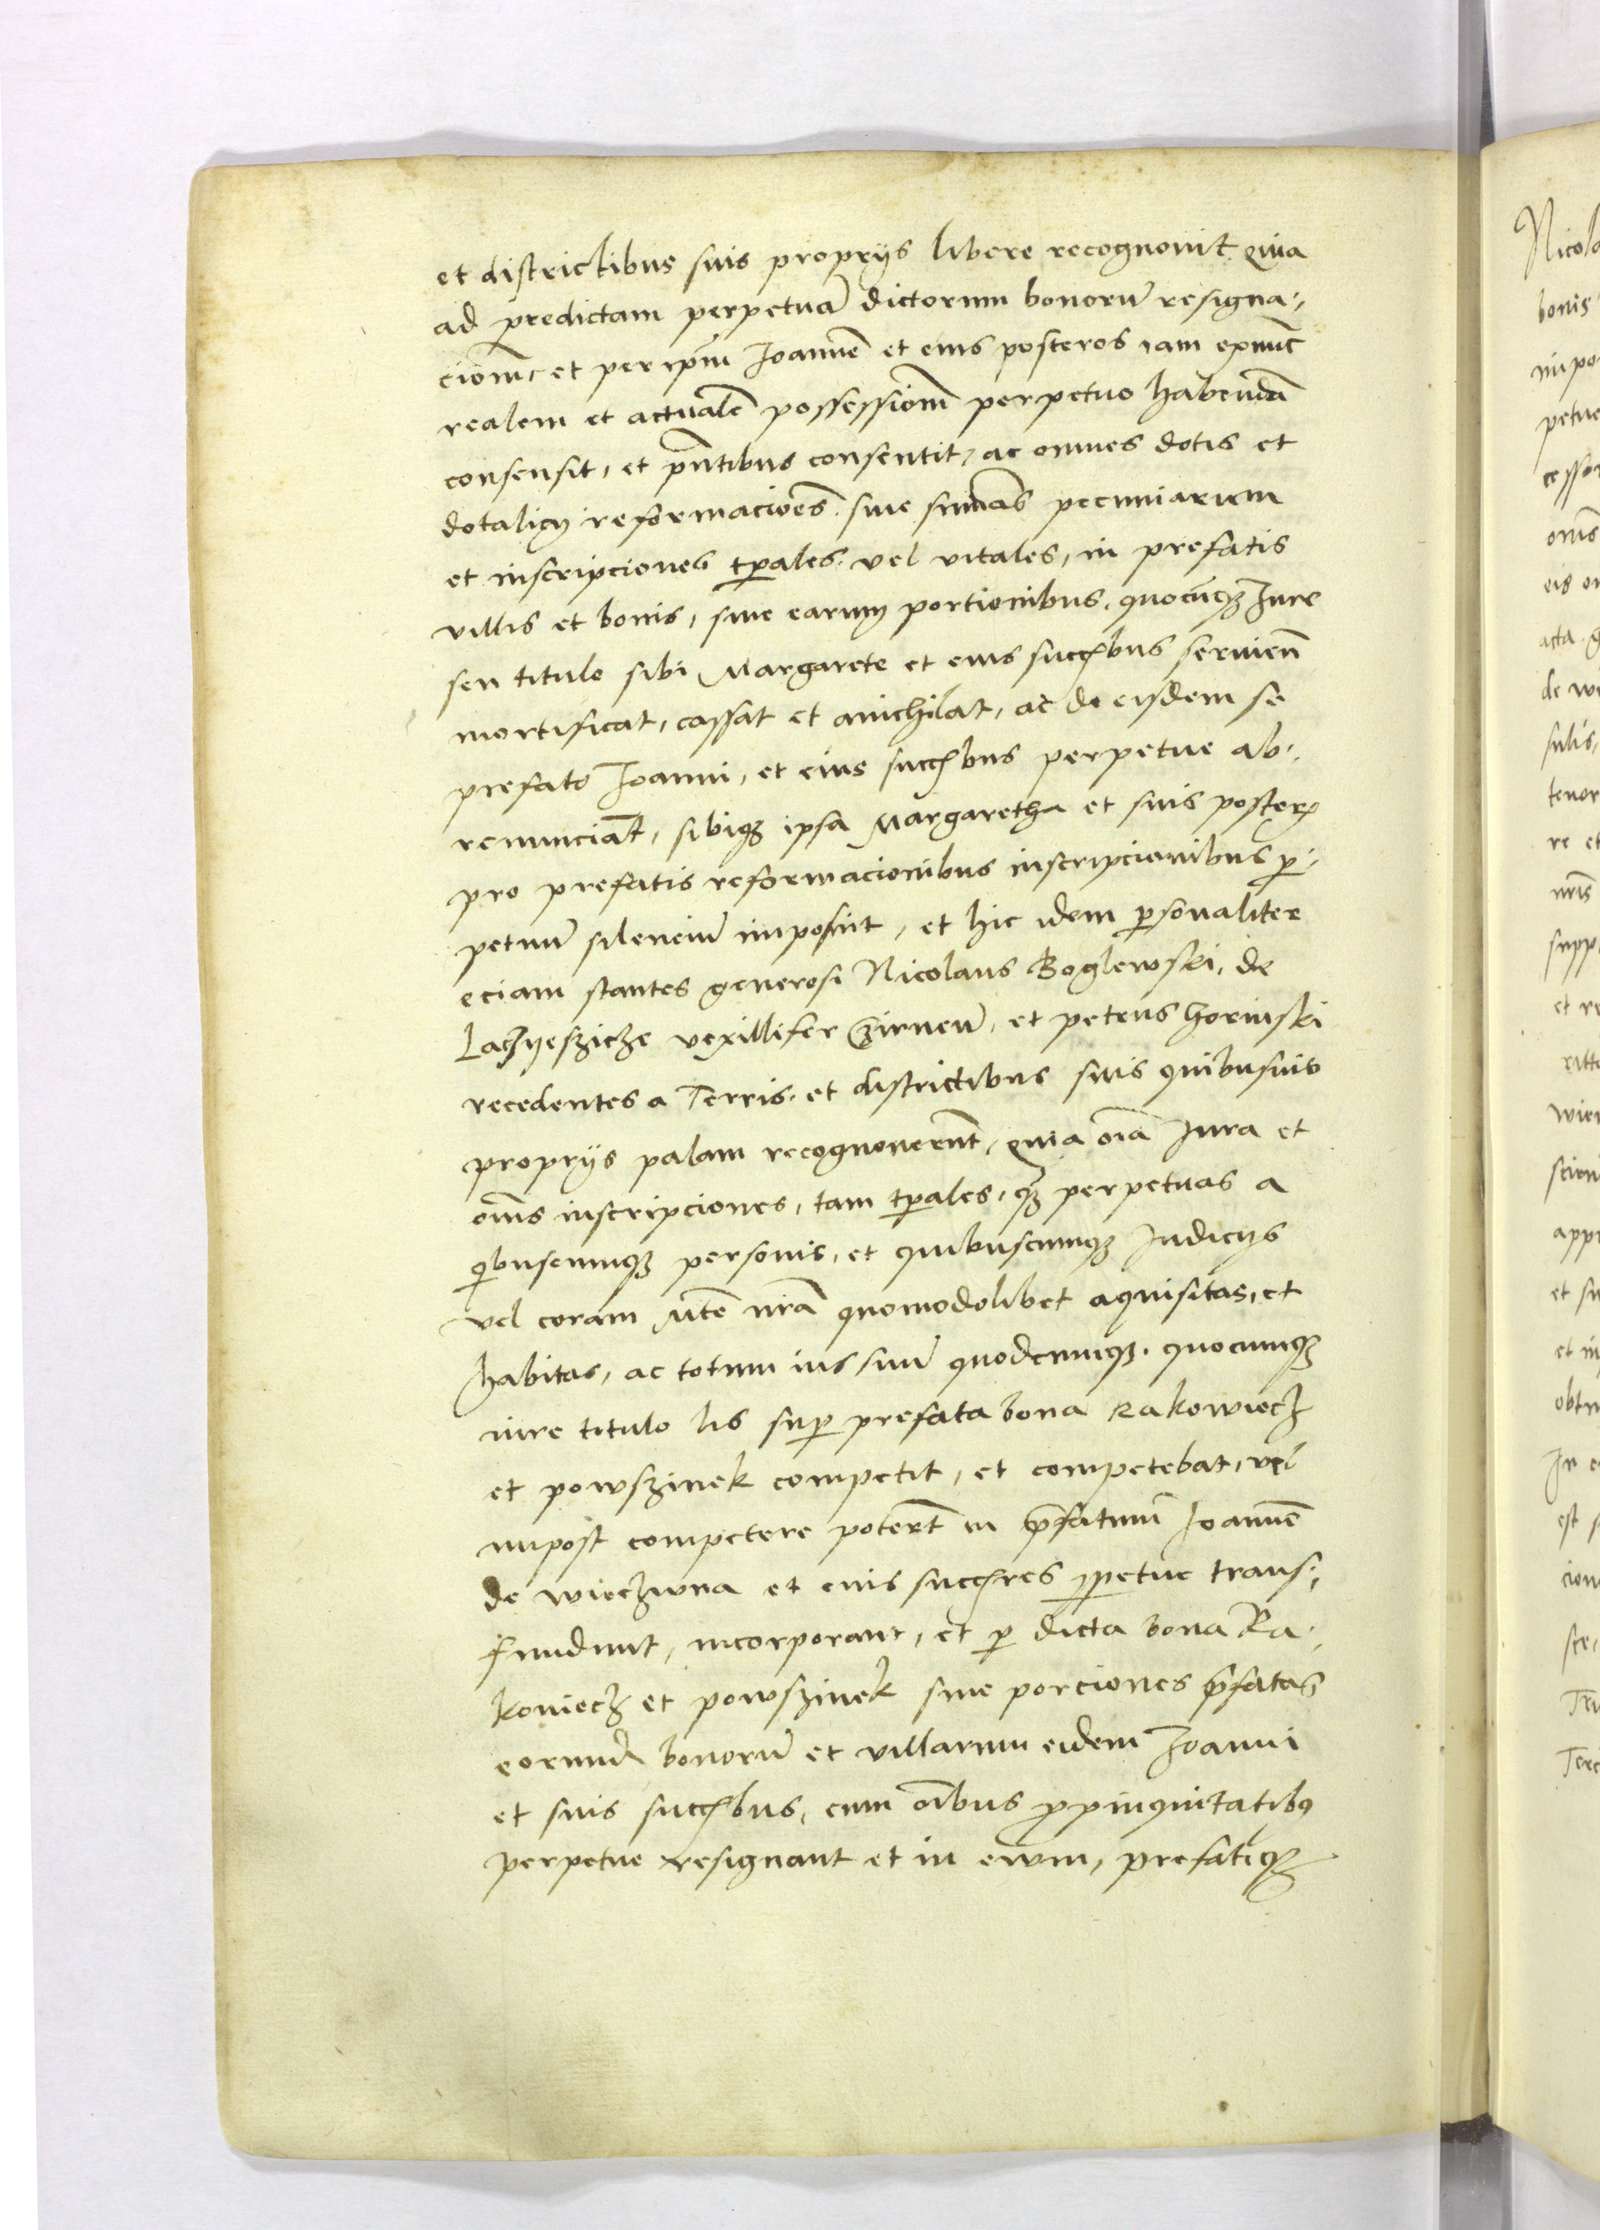 et districtibus suis proprijs libere recognovit quia
ad predictam perpetuā dictorum bonorū resigna-
cionē, et per ipm̄ Joannē et eius posteros iam exnūc
realem et actualē possessionē perpetuo habendā
consensit, et pn̄tibus consentit, ac omnes dotis et
dotalicij reformacioēs. sive sum̄as pecuniarum
et inscripciones tp̄ales. vel vitales, in prefatis
villis et bonis, sive earum portionibus, quocūqꝫ Jure
seu titulo sibi Margarete et eius succ̄bus servien̄
mortificat, cassat et anichilat, ac de eisdem se
prefato Joanni, et eius succ̄bus perpetue ab-
renunciāt, sibiqꝫ ipsa Margaretha et suis posterꝭ
pro prefatis reformacionibus inscripcionibus ꝑ-
petuū silenciū imposuit, et hic idem ꝑsonaliter
eciam stantes generosi Nicolaus Boglewski, de
Lachyeszicze vexillifer Czirneñ, et petrus horinski
recedentes a Terris. et districtibus suis quibusuis
proprijs palam recognoverūt, quia oīa Jura et
om̄s inscripciones, tam tp̄ales, qꝫ perpetuas a
qibuscumqꝫ personis, et quibuscumqꝫ Judicijs
vel coram Mte nr̄a quomodolibet aquisitas, et
habitas, ac totum ius suū quodcumqꝫ. quocumqꝫ
iure titulo lis suꝑ prefata bona Rakowiecz
et powszinek competit, et competebat, vel
inpost competere poterit in p̄fatum Joannē
de wieczwna et eius succ̄res ꝑpetue trans-
fundunt, incorporant, et ꝑ dicta bona Ra-
koviecz et powszinek sive porciones p̄fatas
eorund̄ bonorū et villarum eidem Joanni
et suis succ̄bus, cum oībus ꝓpinquitatibꝰ
perpetue resignant et in eum, prefatiqꝫ